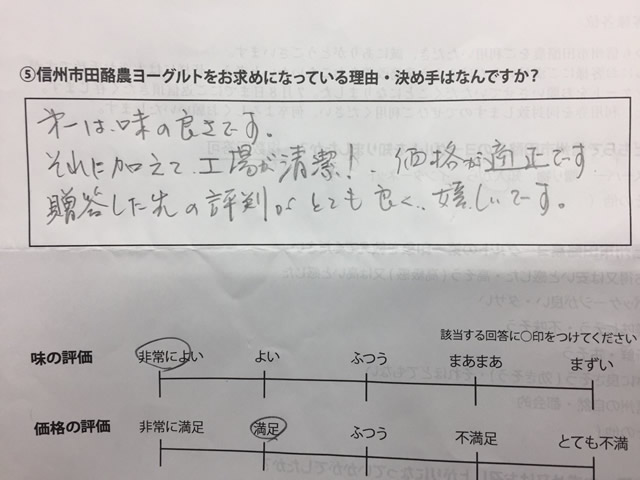 ⑤信州市田酪農ヨーグルトをお求めになっている理由・決め手はなんですか？
第一は、味の良さです。
それに加えて、工場が清潔！、価格が適正です
贈答した先の評判がとても良く、嬉しいです。
該当する回答に〇印をつけてください
味の評価 非常によい よい ふつう まあまあ まずい
価格の評価 非常に満足 満足 ふつう 不満足 とても不満